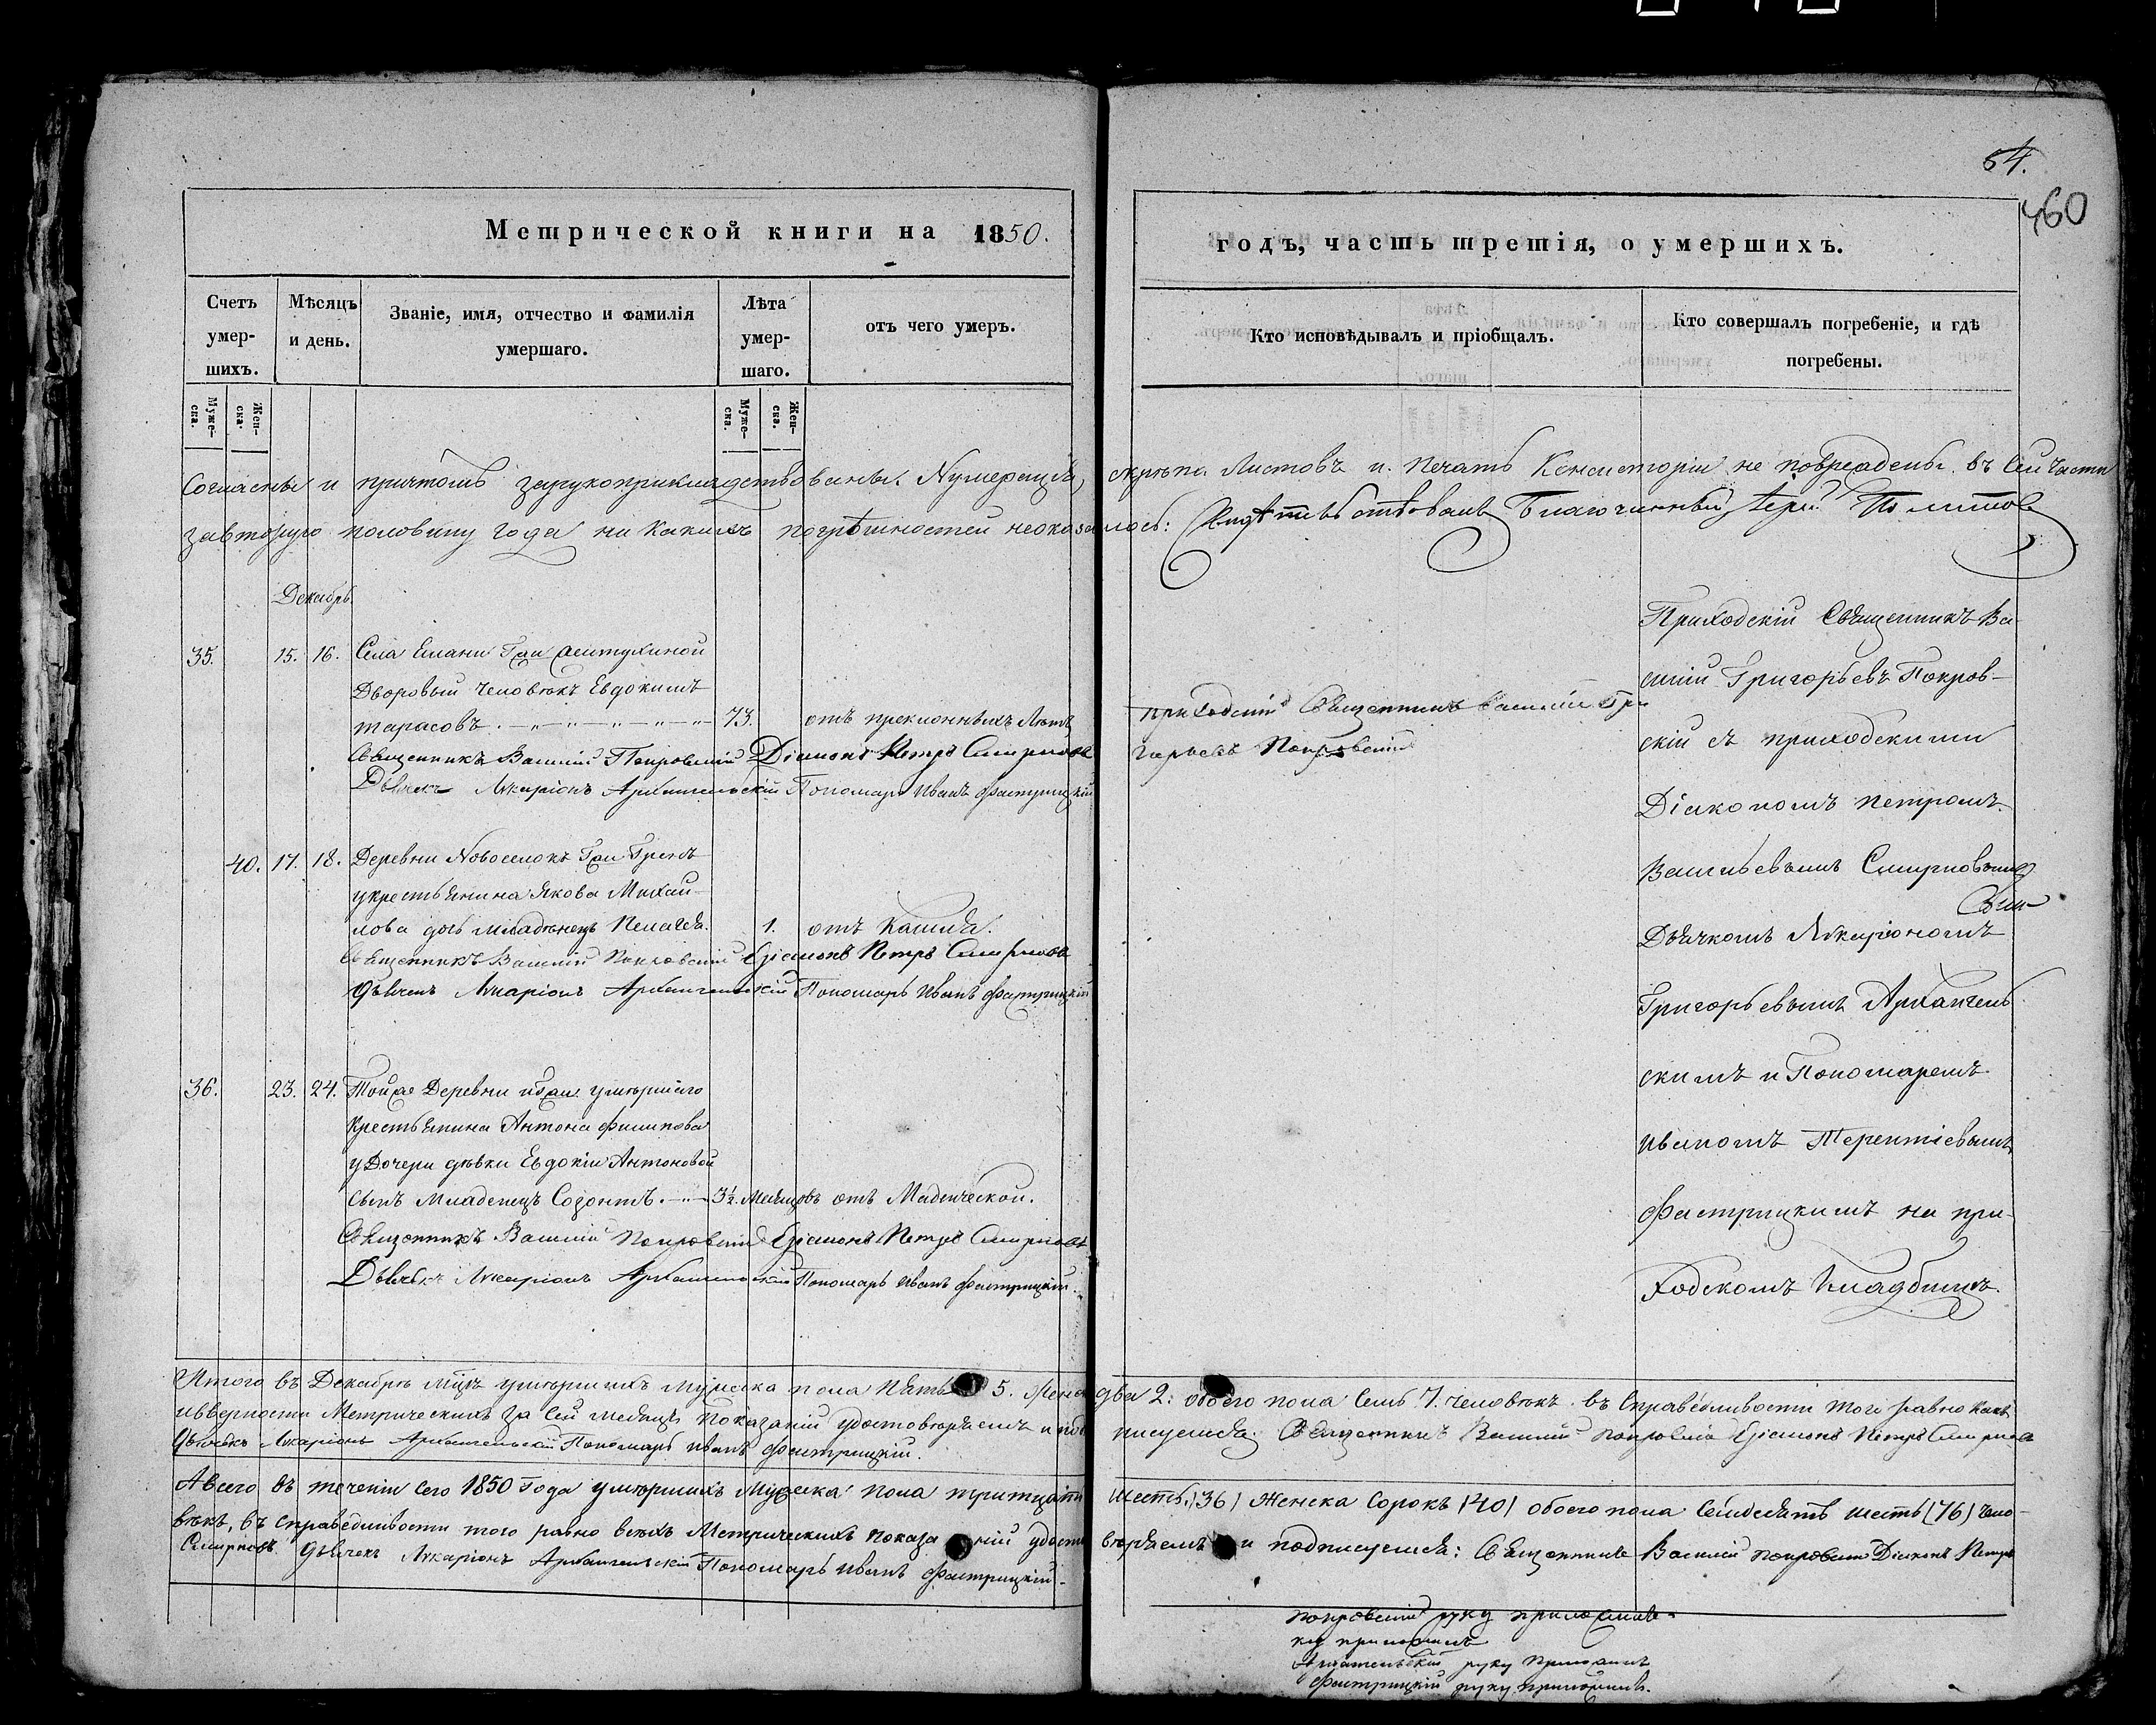 64.
460
Метрической книги на 1850.
Счетъ умер-шихъ.
Мѣсяцъ и день.
Званіе, имя, отчество и фамилія умершаго.
Лѣта умер-шаго.
отъ чего умеръ.
Муже-ска.
Жен-ска.
Муже-ска.
Жен-ска.
годъ, часть третія, о умершихъ.
Кто исповѣдывалъ и пріобщалъ.
Кто совершалъ погребеніе, и гдѣ погребены.
Согласны и причтомъ зарукоприкладствованы. Нумерація, скрѣпа листовъ и печать Консисторіи не повреждены. въ сей части
завторую половину года ни какихъ погрѣшностей неоказалось: Свидѣтельствовалъ Благочинный
Декабрь.
35. 15. 16. Села
Дворовый человѣкъ Евдокимъ
тарасовъ 73. отъ преклонныхъ лѣтъ
Священникъ Василій Покровскій Діаконъ Петръ Смирновъ
Дьячекъ Иларіонъ Архангельскій Пономарь Иванъ
приходскій Священникъ Василій Гри
горьевъ Покровскій
40. 17. 18. Деревни Новоселокъ
укрестьянина Якова Михай-
лова дочь младенецъ Пелагея. 1. отъ Кашля.
Священникъ Василій Покровскій Діаконъ Петръ Смирновъ
Дьячекъ Иларіонъ Архангельскій Пономарь Иванъ
36. 23. 24. Тойже Деревни умершаго
Крестьянина Антона Филипова
уДочери дѣвки Евдокіи Антоновой
сынъ младенецъ Созонтъ. 3½. Месяцовъ отъ
Священникъ Василій Покровскій Діаконъ Петръ Смирновъ
Дьячекъ Иларіонъ Архангельскій Пономарь Иванъ
Приходскій Священникъ Ва-
силій Григорьевъ Покров-
скій съ приходскими
Діакономъ петромъ
Васильевымъ Смирновымъ
Дьячкомъ Иларіономъ
Григорьевымъ Архангель
скимъ и Пономаремъ
иваномъ Терентіевымъ
на при-
ходскомъ кладбищѣ.
Итого въ Декабрѣ мцѣ умершихъ мужска пола пять 5. Женска два 2: обоего пола семь 7. человѣкъ. въ справедливости того равно какъ
ивверности Метрическихъ за сей месяцъ показаній удостовѣряемъ и под писуемся: Священникъ Василій Покровскій Діаконъ Петръ Смирновъ
Дьячекъ Иларіонъ Архангельскій Пономарь Иванъ
Авсего въ теченіи сего 1850 года умершихъ мужеска пола тритцать шесть (36) женска сорокъ (40) обоего пола семьдесятъ шесть (76) чело-
вѣкъ, въ справедливости того равно всѣхъ Метрическихъ показаній удосто вѣряемъ и подписуемся: Священникъ Василій Покровскій Діаконъ Петръ
Смирновъ. Дьячекъ Иларіонъ Архангельскій Пономарь Иванъ
Покровскій руку приложилъ
ку приложилъ
Архангельскій руку приложилъ
руку приложилъ.